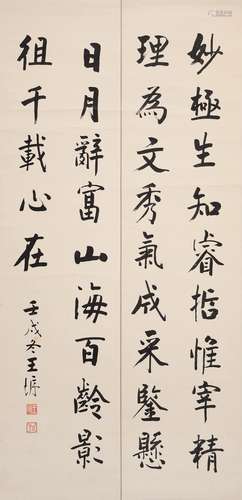 妙極生知睿哲惟宰精
理為文秀氣成采鑒懸
日月辭富山海百齡影
徂千載心在
壬戌冬王